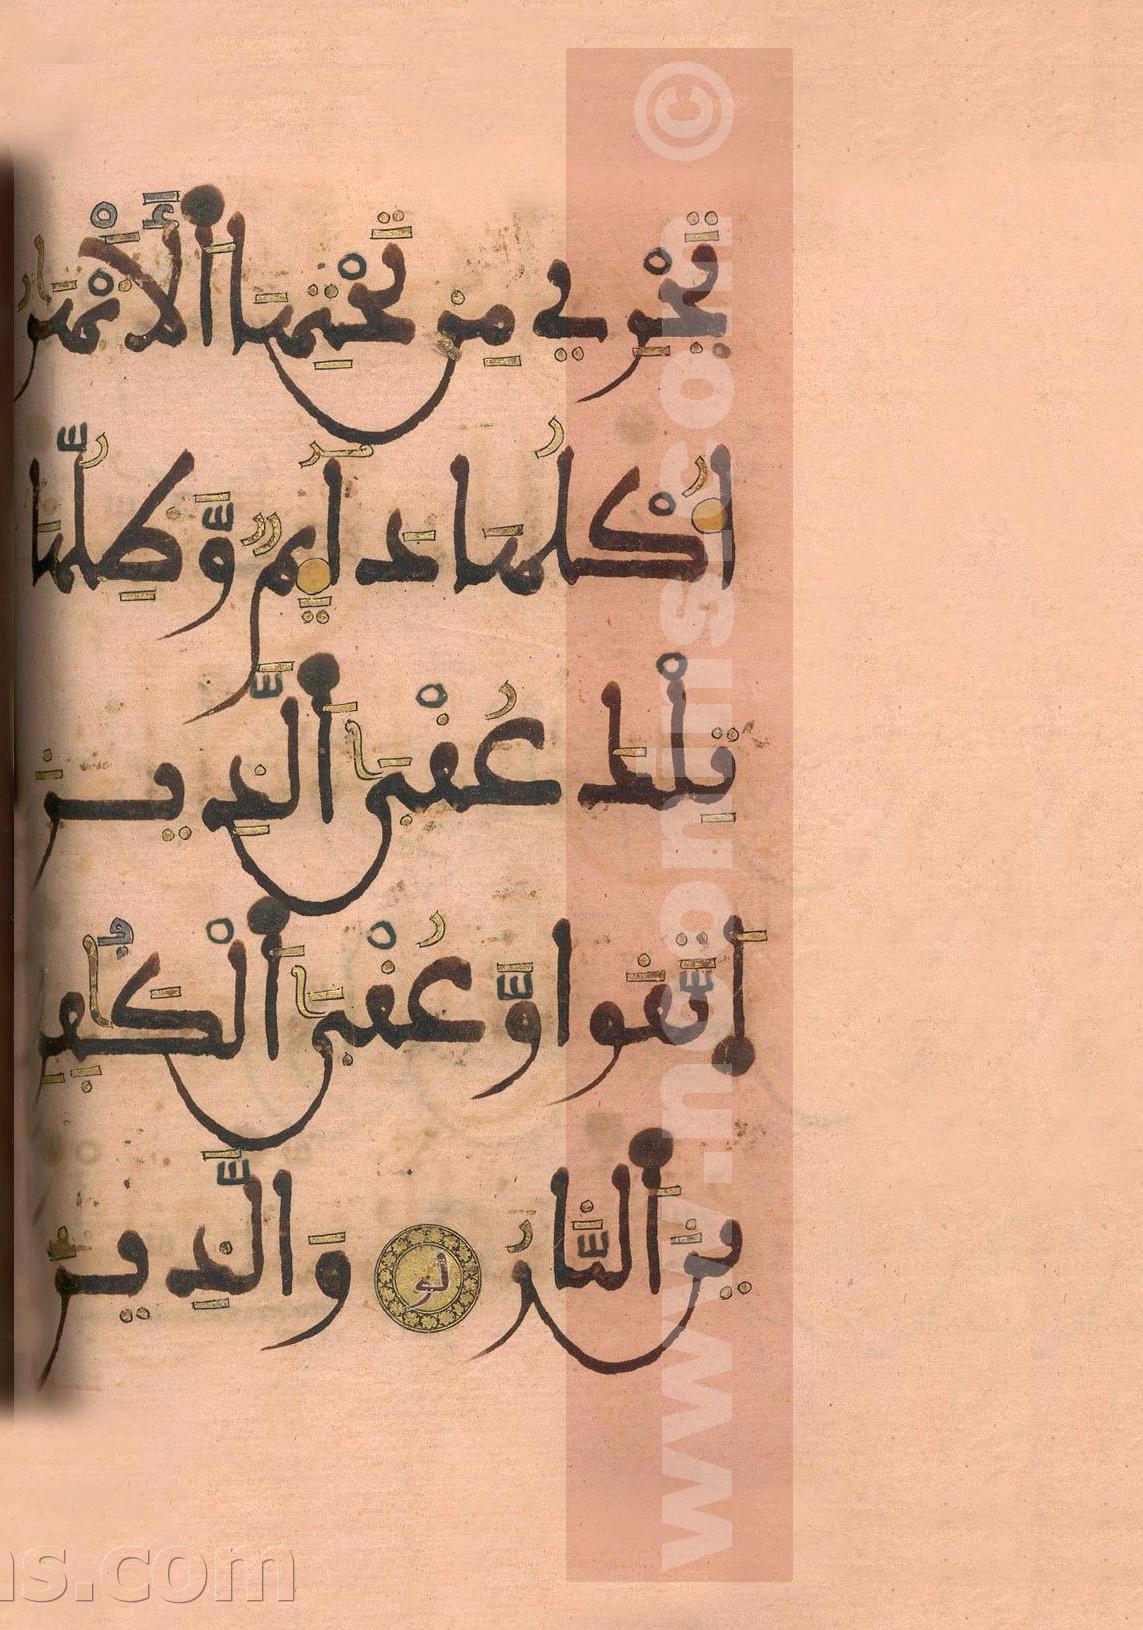 تَجْرِي مِن تَحْتِهَا ٱلْأَنْهَٰرُ
أُكْلُهَا دَآئِمٌ وَظِلُّهَا
تِلْكَ عُقْبَى ٱلَّذِينَ
ٱتَّقَواْ وَّعُقْبَى ٱلْكَٰفِرِ
ينَ ٱلنَّارُ لو وَالَّذِينَ
www.ncoins.com ©
ns.com